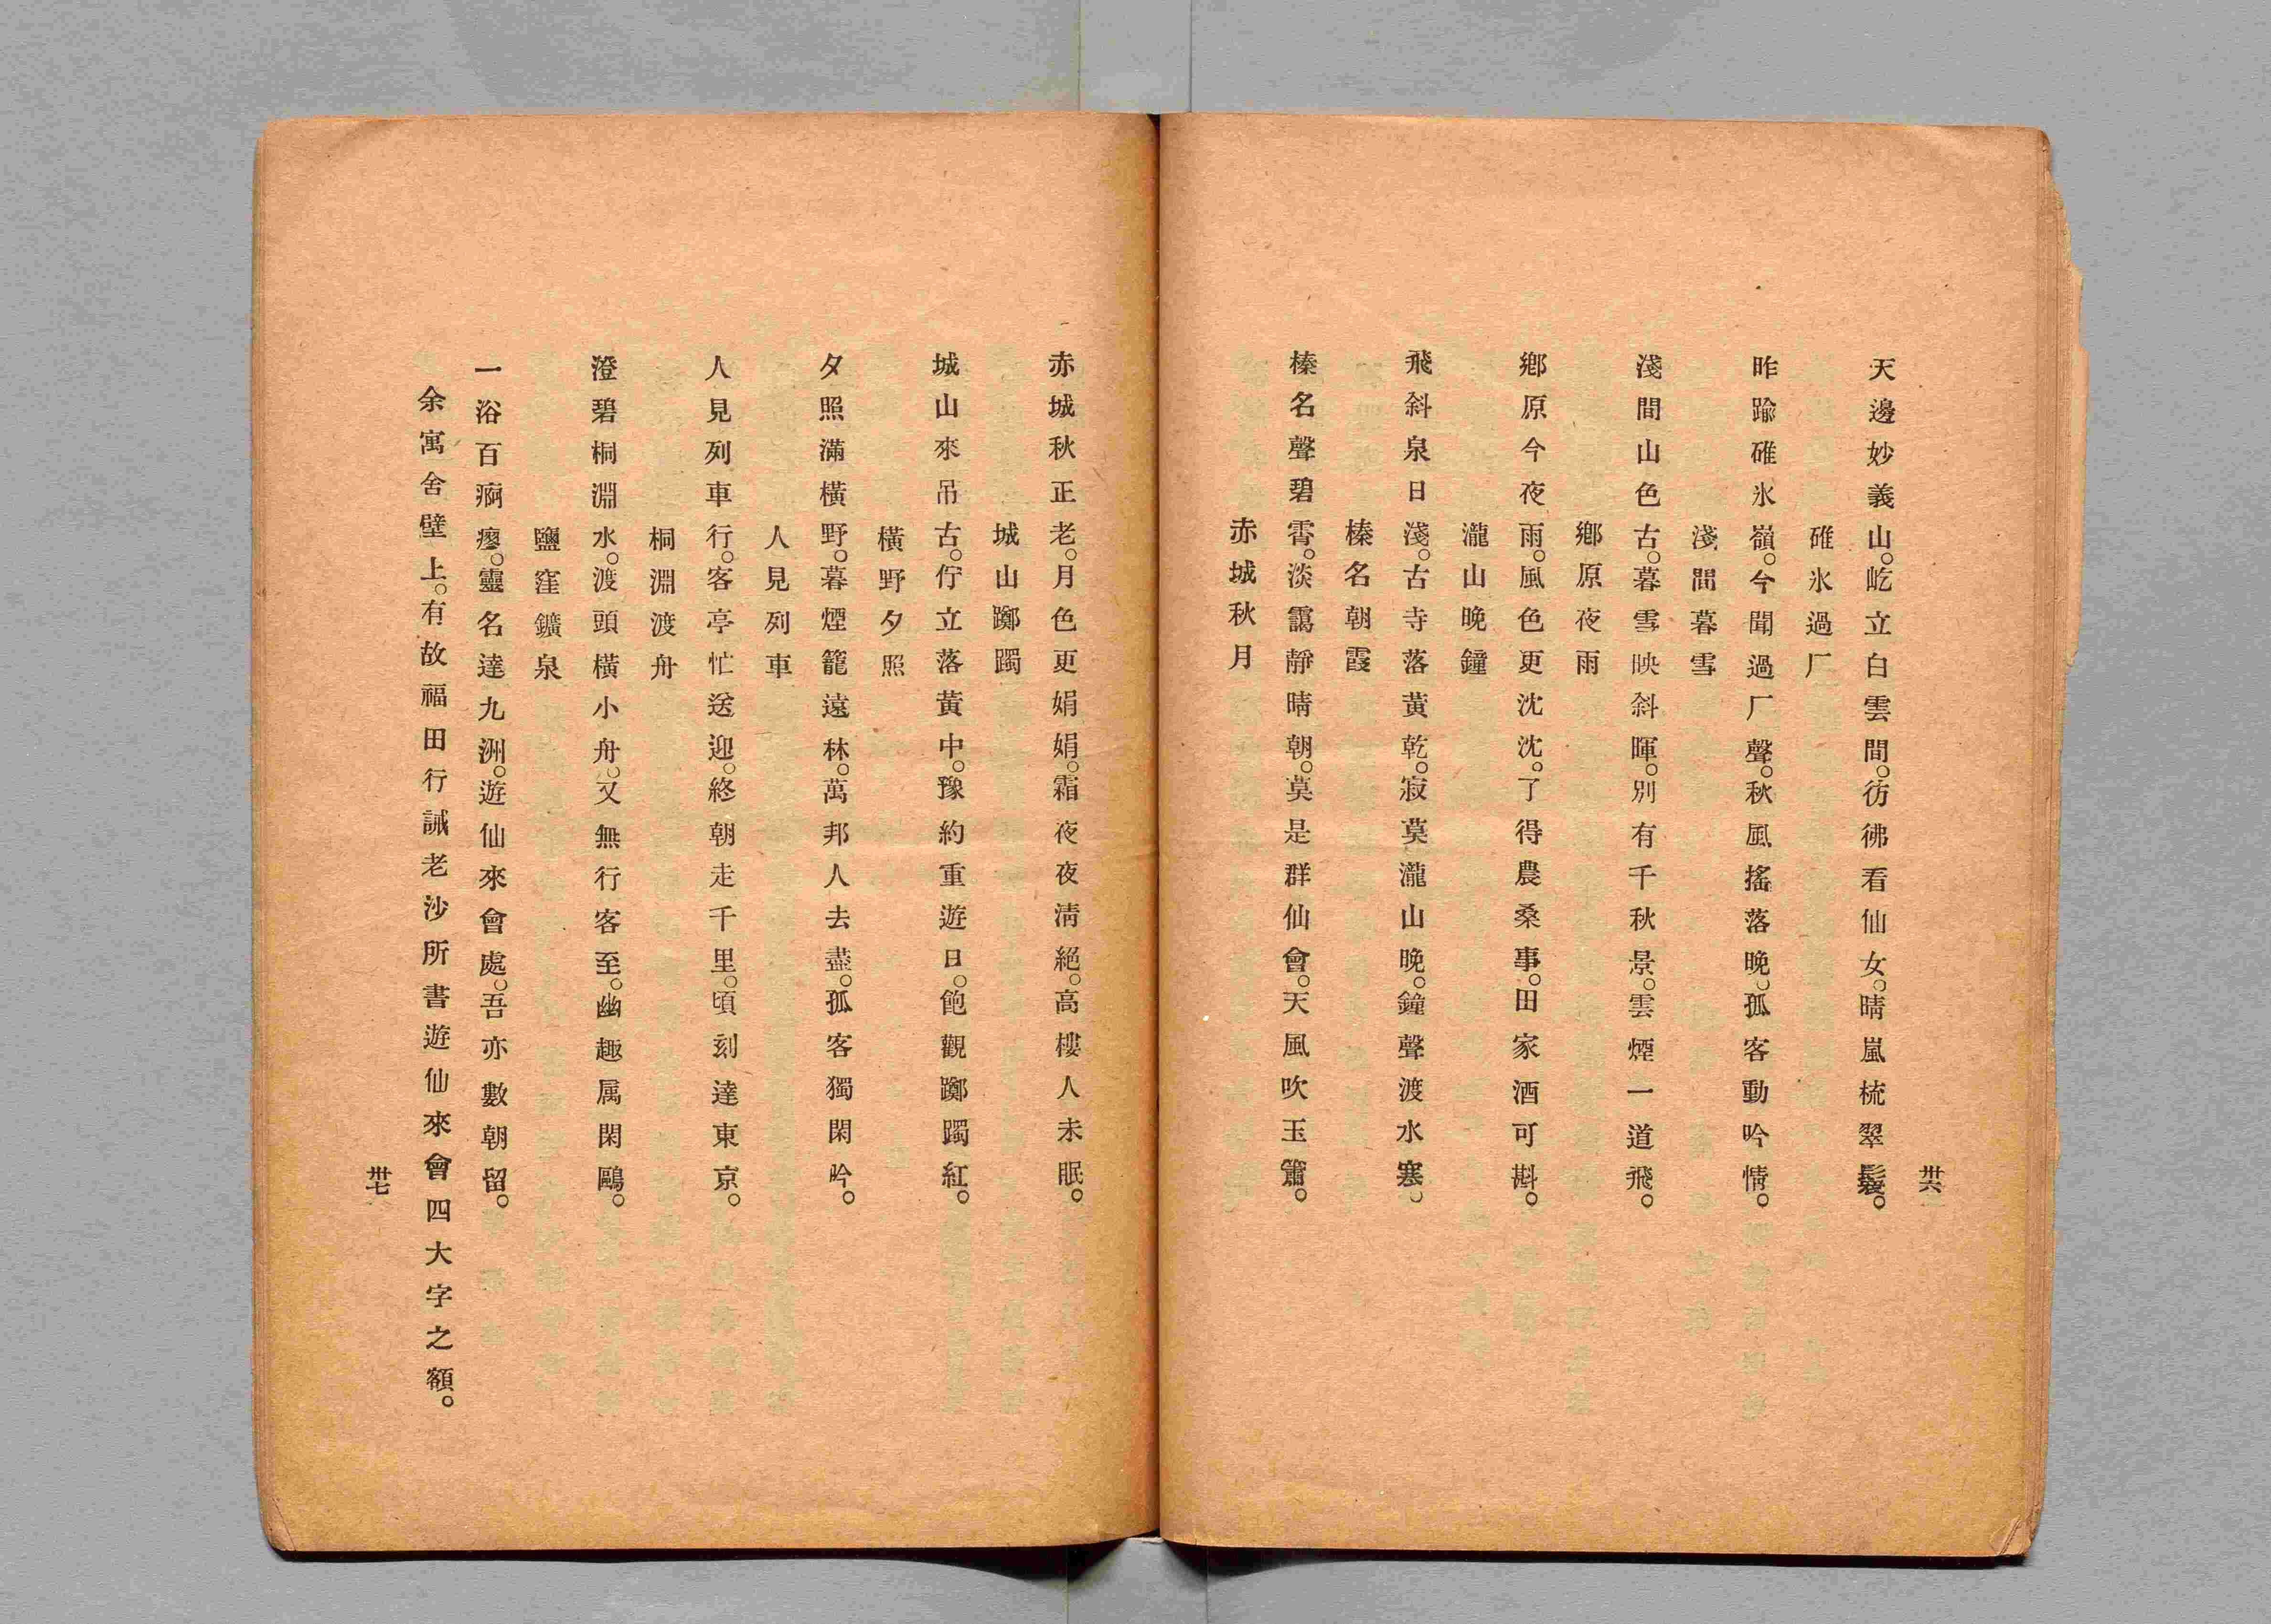 卅六
天邊妙義山。屹立白雲間。彷彿看仙女。晴嵐梳翠鬟。
碓氷過厂
昨踰碓氷嶺。今聞過厂聲。秋風搖落晩。孤客動吟情。
淺間暮雪
淺間山色古。暮雪映斜暉。別有千秋景。雲煙一道飛。
鄕原夜雨
鄕原今夜雨。風色更沈沈。了得農桑事。田家酒可斟。
瀧山晩鐘
飛斜泉日淺。古寺落黃乾。寂莫瀧山晩。鐘聲渡水寒。
榛名朝霞
榛名聲碧霄。淡靄靜晴朝。莫是群仙會。天風吹玉簫。
赤城秋月
赤城秋正老。月色更娟娟。霜夜夜淸絕。高樓人未眠。
城山躑躅
城山來吊古。佇立落黃中。豫約重遊日。飽觀躑躅紅。
橫野夕照
夕照滿橫野。暮煙籠遠林。萬邦人去盡。孤客獨閑吟。
人見列車
人見列車行。客亭忙送迎。終朝走千里。頃刻達東京。
桐淵渡舟
澄碧桐淵水。渡頭橫小舟。又無行客至。幽趣属閑鷗。
鹽窪鑛泉
一浴百痾瘳。靈名達九洲。遊仙來會處。吾亦數朝留。
余寓舍壁上。有故福田行誡老沙所書遊仙來會四大字之額。
卅七